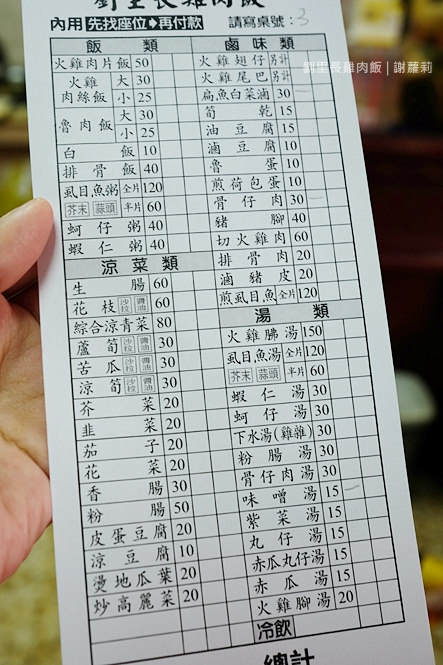 劉里長雞肉飯
內用 先找座位➡再付款 請寫桌號：3
飯類
火雞肉片飯 50
火雞肉絲飯 大 30
小 25
魯肉飯 大 30
小 25
白飯 10
排骨飯 40
虱目魚粥 全片 120
芥末 蒜頭 半片 60
蚵仔粥 40
蝦仁粥 40
涼菜類
生腸 60
花枝 沙拉 醬油 60
綜合涼青菜 80
蘆筍 沙拉 醬油 30
苦瓜 沙拉 醬油 30
涼筍 沙拉 醬油 30
芥菜 20
韭菜 20
茄子 20
花菜 20
香腸 30
粉腸 50
皮蛋豆腐 20
涼豆腐 10
燙地瓜葉 20
炒高麗菜 20
滷味類
火雞翅仔 另計
火雞尾巴 另計
扁魚白菜滷 30
筍乾 15
油豆腐 15
滷豆腐 10
魯蛋 10
煎荷包蛋 10
骨仔肉 30
豬腳 40
切火雞肉 60
排骨肉 20
滷豬皮 20
煎虱目魚 全片 120
湯類
火雞腷湯 150
虱目魚湯 全片 120
芥末 蒜頭 半片 60
蝦仁湯 30
蚵仔湯 30
下水湯(雞雜) 30
粉腸湯 30
骨仔肉湯 30
味噌湯 15
紫菜湯 15
丸仔湯 15
赤瓜丸仔湯 15
赤瓜湯 15
火雞腳湯 20
冷飲
總計
劉里長雞肉飯 | 謝蘿莉